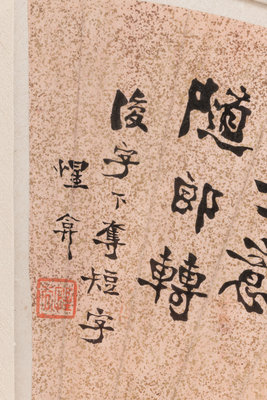 意
隨郎轉
後字下奪短字
惺弇